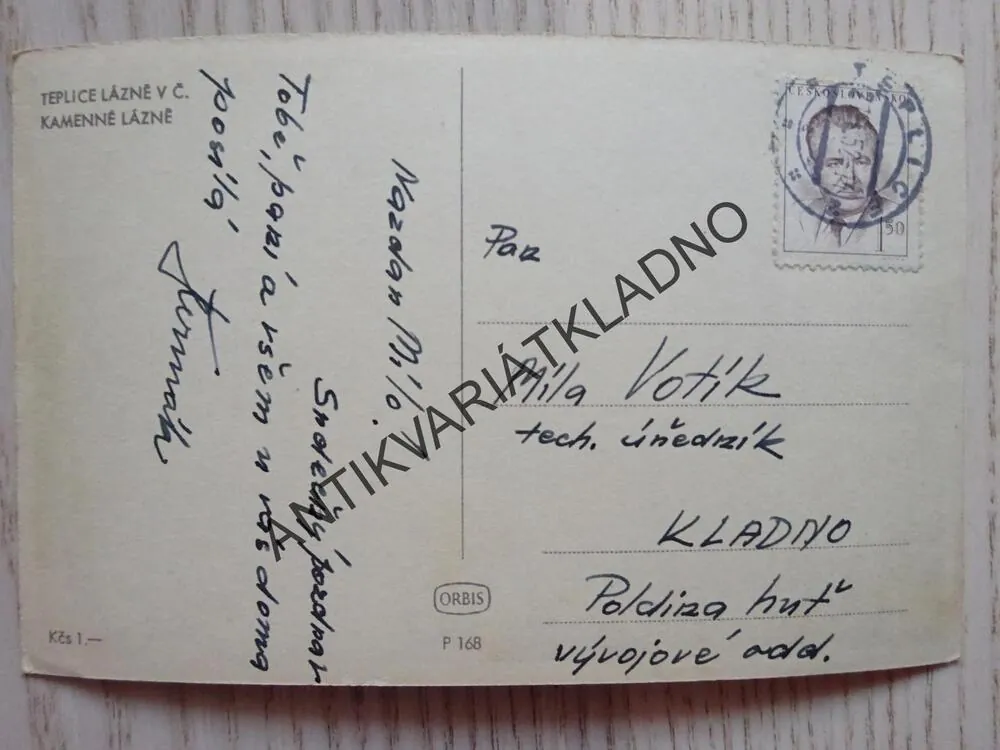 TEPLICE LÁZNĚ V Č.
KAMENNÉ LÁZNĚ
Nazdar Mílo.
Srdečný pozdrav
Tobě, paní a všem u vás doma
posílá
ČESKOSLOVENSKO
TEPLICE
1,50
Pan
Míla Votík
tech. úředník
KLADNO
Poldina huť
vývojové odd.
ORBIS
P 168
Kčs 1.—
ANTIKVARIÁTKLADNO